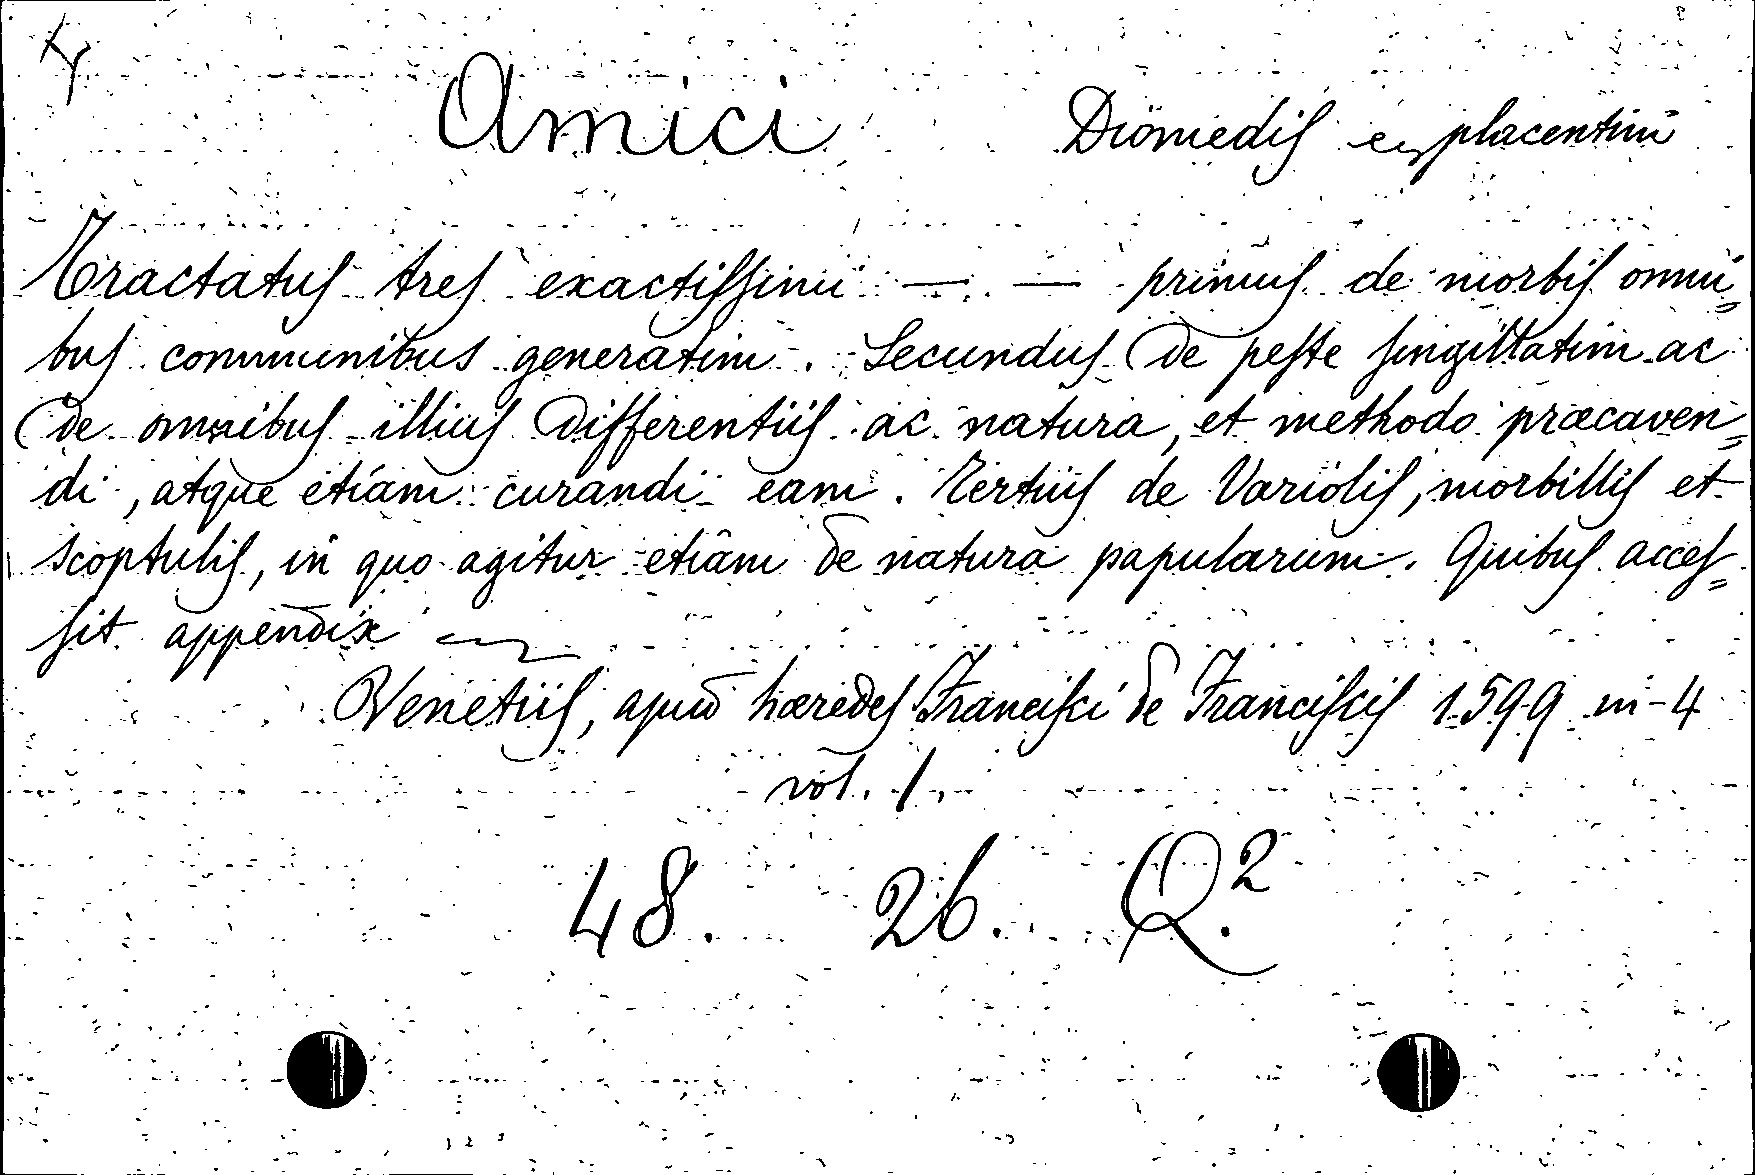 Amici Diomedis placentini
Tractatus tres exactissimi — — primus de morbis omni=
bus communibus generatim. Secundus de peste singillatim ac
de omnibus illius differentiis ac natura, et methodo præcaven=
di, atque etiám curandi eam. Tertius de Variolis, morbillis et
scoptulis, in quo agitur etiâm de natura papularum. Quibus acces=
sit appendix
Venetiis, apud hæredes Francisci de Franciscis 1599 in-4
vol. 1.
48. 26. Q.²